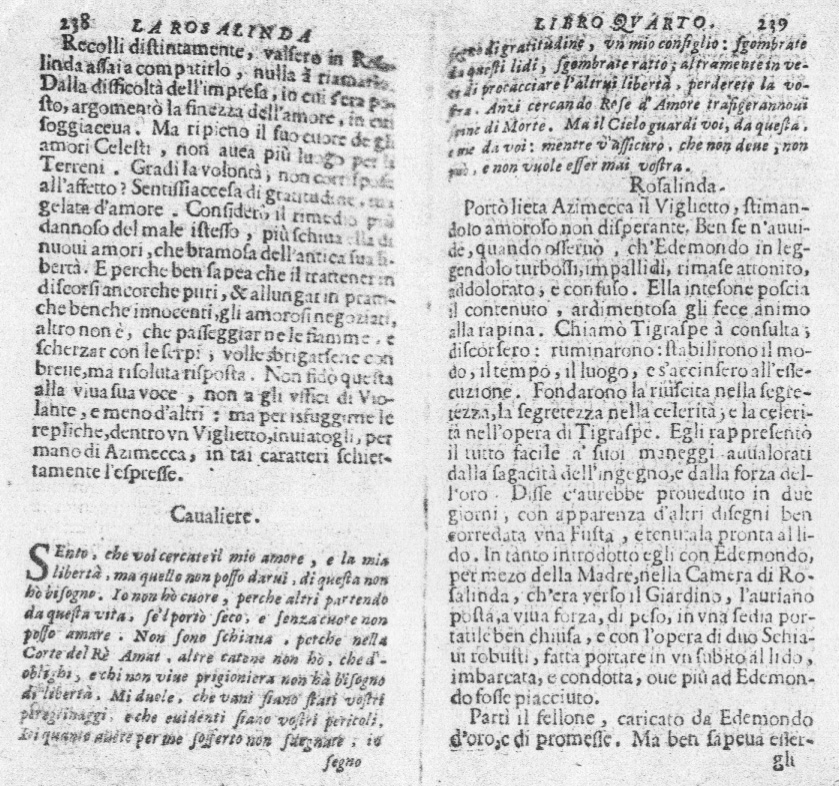 238 LA ROSALINDA
Recolli distintamente, valsero in Rosa-
linda assai a compatirlo, nulla à riamarlo.
Dalla difficoltà dell'impresa, in cui s'era po-
sto, argomentò la finezza dell'amore, in cui
soggiaceua. Ma ripieno il suo cuore de gli
amori Celesti, non auea più luogo per li
Terreni. Gradì la volontà, non corrispose
all'affetto? Sentissi accesa di gratitudine, ma
gelata d'amore. Considerò il rimedio più
dannoso del male istesso, più schiua ella di
nuoui amori, che bramosa dell'antica sua li-
bertà. E perche ben sapea che il trattener in
discorsi ancorche puri, & allungar in prati-
che benche innocenti, gli amorosi negoziati,
altro non è, che passeggiar ne le fiamme, e
scherzar con le serpi; volle sbrigarsene con
breue, ma risoluta risposta. Non fidò questa
alla viua sua voce, non a gli vffici di Vio-
lante, e meno d'altri: ma per isfuggirne le
repliche, dentro vn Viglietto, inuiatogli, per
mano di Azimecca, in tai caratteri schiet-
tamente l'espresse.
Caualiere.
SEnto, che voi cercate il mio amore, e la mia
libertà, ma quello non posso darui, di questa non
hò bisogno. Io non hò cuore, perche altri partendo
da questa vita, se'l portò seco, e senza cuore non
posso amare. Non sono schiaua, perche nella
Corte del Rè Amat, altre catene non hò, che d'-
oblighi, e chi non viue prigioniera non hà bisogno
di libertà. Mi duole, che vani siano stati vostri
peregrinaggi, e che euidenti siano vostri pericoli.
Di quanto auete per me sofferto non sdegnate, in
segno
LIBRO QVARTO. 239
segno di gratitudine, vn mio consiglio: sgombrate
da questi lidi, sgombrate ratto; altramente in ve-
ce di procacciare l'altrui libertà, perderete la vo-
stra. Anzi cercando Rose d'Amore trafigerannoui
spine di Morte. Ma il Cielo guardi voi, da questa,
e me da voi: mentre v'assicuro, che non deue, non
può, e non vuole esser mai vostra.
Rosalinda.
Portò lieta Azimecca il Viglietto, stiman-
dolo amoroso non disperante. Ben se n'auui-
de, quando osseruò, ch'Edemondo in leg-
gendolo turbossi, impallidì, rimase attonito,
addolorato, e confuso. Ella intesone poscia
il contenuto, ardimentosa gli fece animo
alla rapina. Chiamò Tigraspe à consulta;
discorsero: ruminarono: stabilirono il mo-
do, il tempo, il luogo, e s'accinsero all'esse-
cuzione. Fondarono la riuscita nella segre-
tezza, la segretezza nella celerità; e la celeri-
tà nell'opera di Tigraspe. Egli rappresentò
il tutto facile a' suoi maneggi auualorati
dalla sagacità dell'ingegno, e dalla forza del-
l'oro. Disse c'aurebbe proueduto in due
giorni, con apparenza d'altri disegni ben
corredata vna Fusta, e tenutala pronta al li-
do. In tanto introdotto egli con Edemondo,
per mezo della Madre, nella Camera di Ro-
salinda, ch'era verso il Giardino, l'auriano
posta, a viua forza, di peso, in vna sedia por-
tatile ben chiusa, e con l'opera di duo Schia-
ui robusti, fatta portare in vn subito al lido,
imbarcata, e condotta, oue più ad Edemon-
do fosse piacciuto.
Partì il fellone, caricato da Edemondo
d'oro, e di promesse. Ma ben sapeua esser-
gli